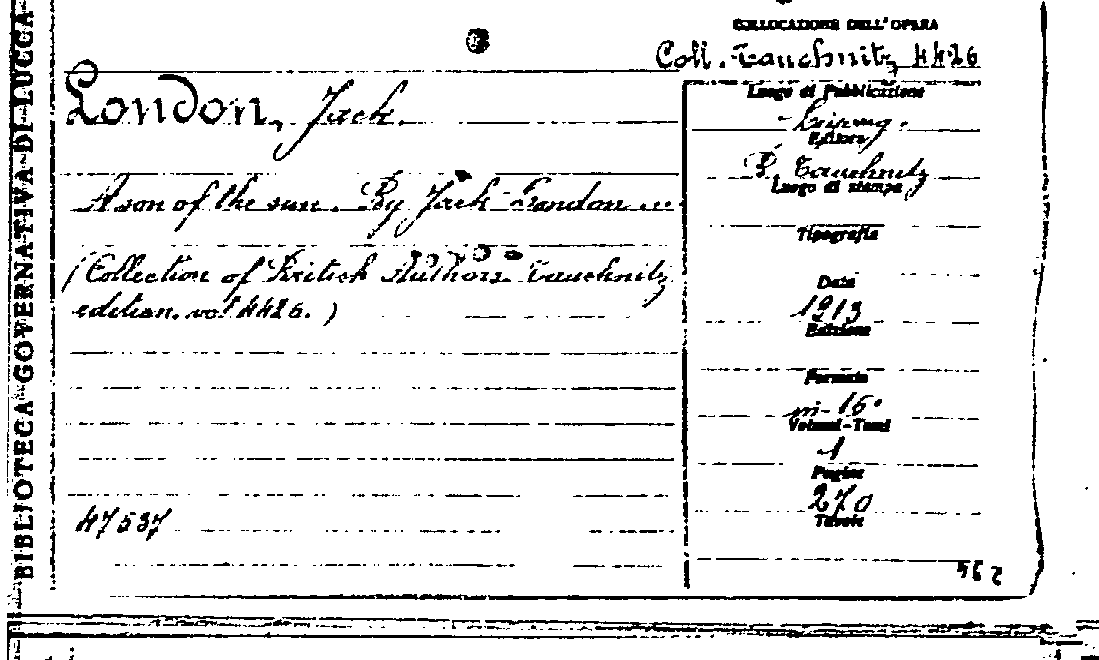 BIBLIOTECA GOVERNATIVA DI LUCCA
COLLOCAZIONE DELL'OPERA
Coll. Tauchnitz 4426
London, Jack.
A son of the sun. By Jack London ...
(Collection of British Authors. Tauchnitz
edition. vol 4426. )
47537
Luogo di Pubblicazione
Leipzig.
Editore
B. Tauchnitz
Luogo di stampa
Tipografia
Data
1913
Edizione
Formato
in-16°
Volumi-Tomi
1
Pagine
270
Tavole